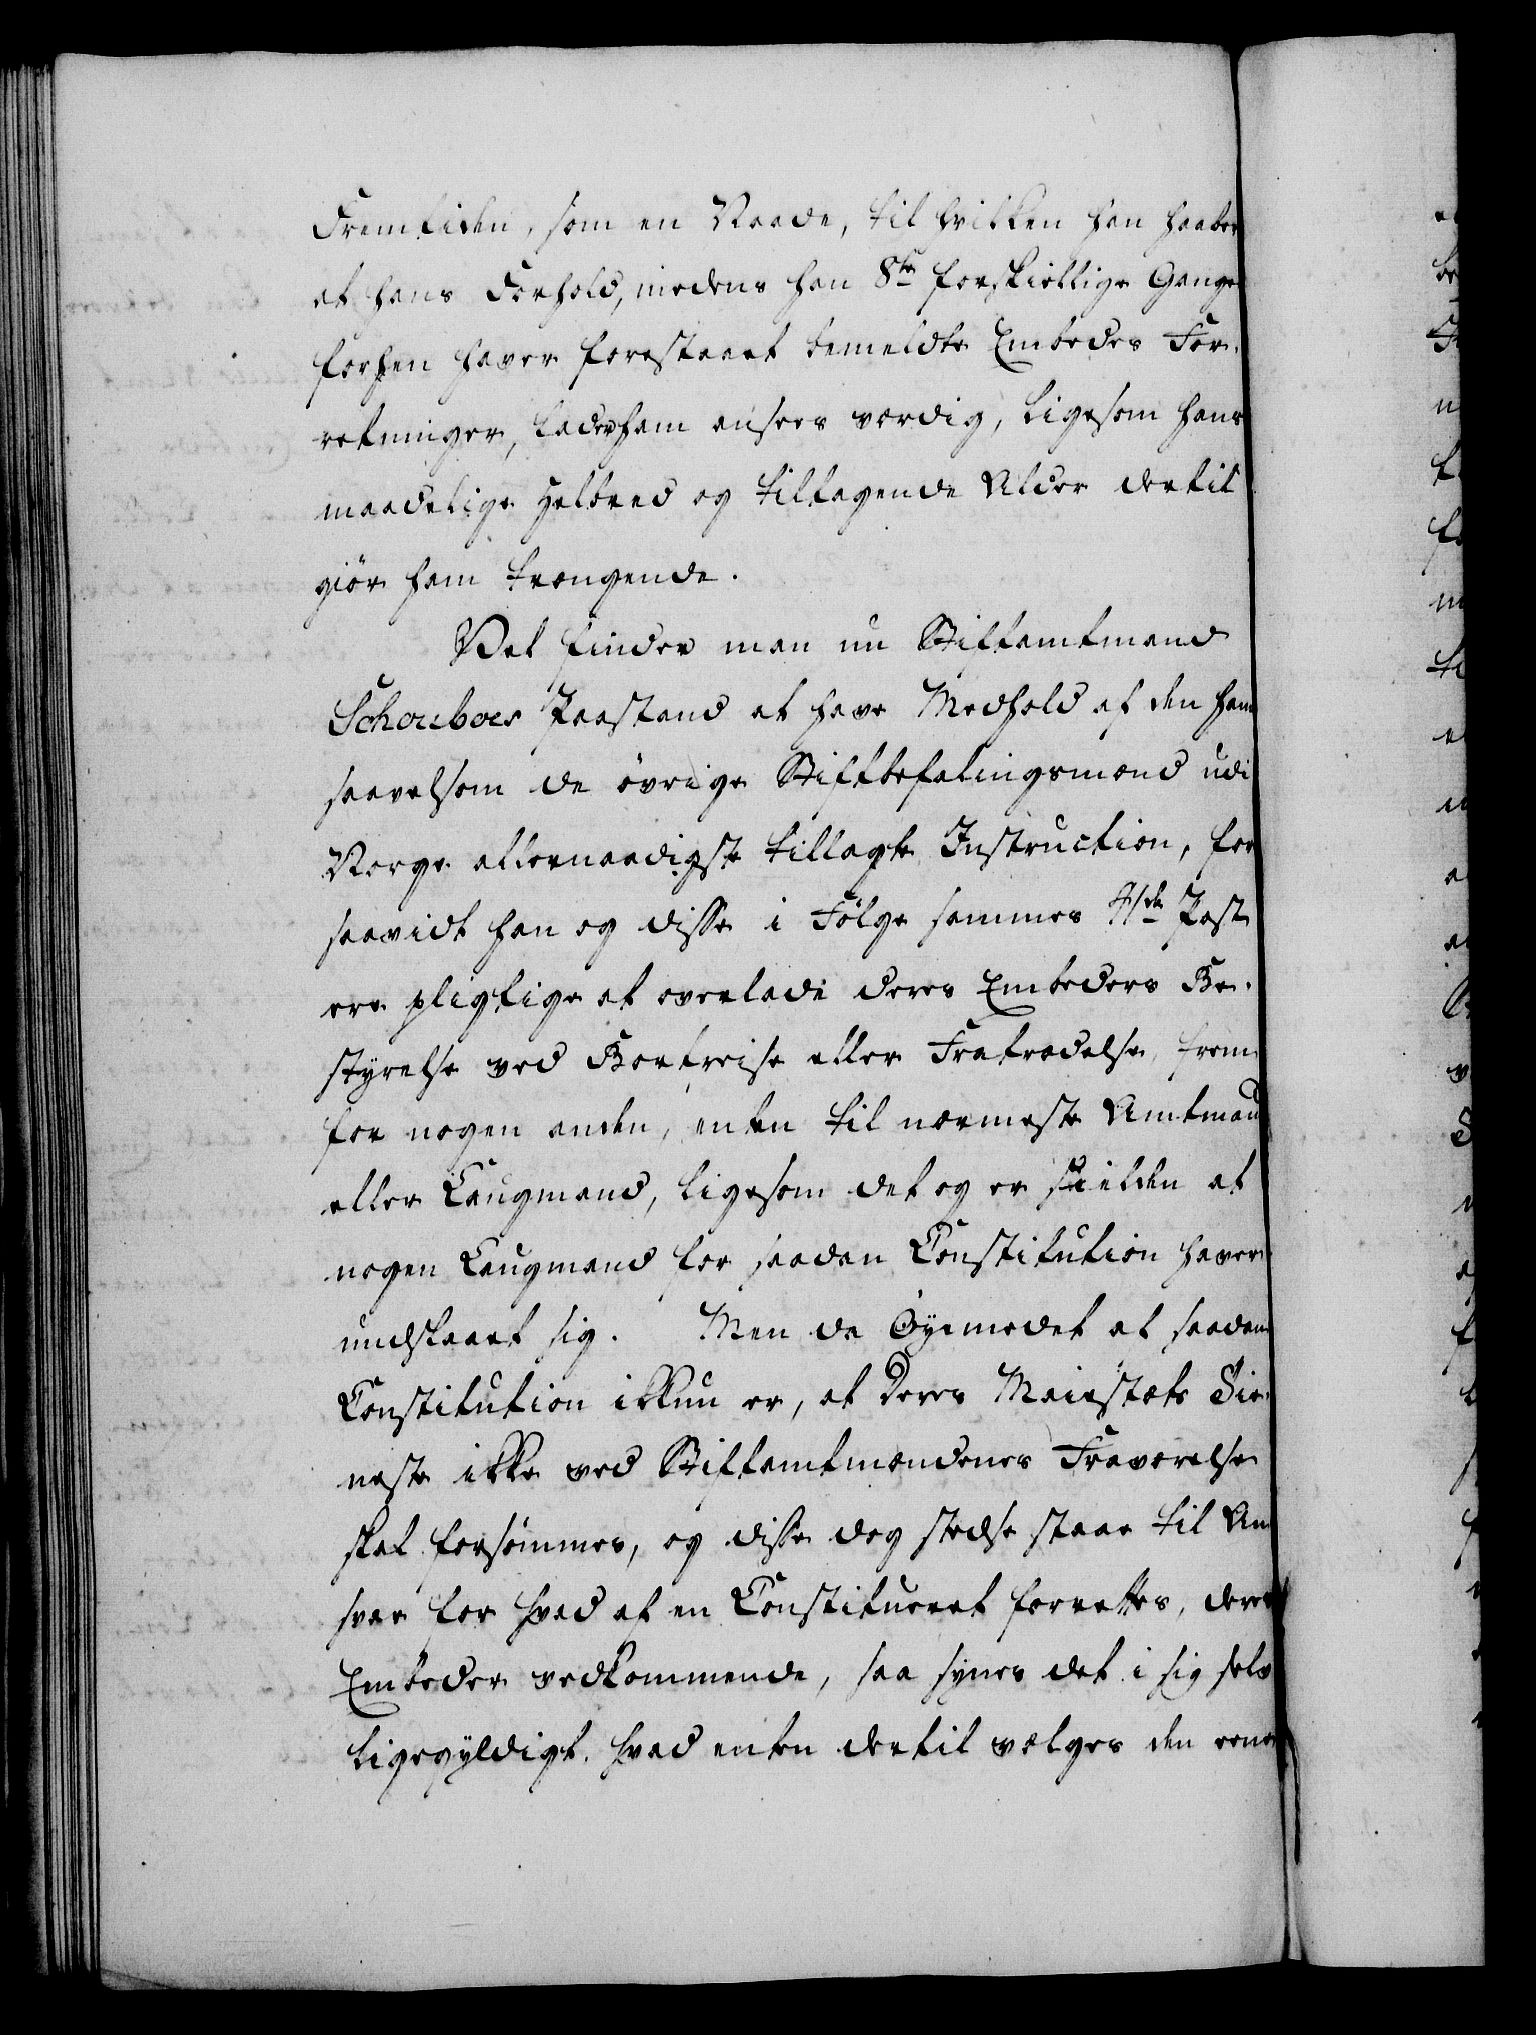 Fremtiden, som en Naade, til hvilken han haaber
at hans Forhold, medens han 8te forskiellige Gange
forhen haver forestaaet bemeldte Embedes For-
retninger, lader ham ansees værdig, ligesom hans
maadelige Helbred og tiltagende Alder dertil
giör ham trængende.
Vel finder man nu Stiftamtmand
Schouboes Paastand at have Medhold af den ham
saavelsom de övrige Stiftbefalingsmænd udi
Norge allernaadigst tillagte Instruction, for
saavidt han og disse i Fölge sammes 4de Post
ere pligtige at overlade deres Embeders Be-
styrelse ved Bortreise eller Fratrædelse, frem
for nogen anden, enten til nærmeste Amtmand
eller Laugmand, ligesom det og er skielden at
nogen Laugmand for saadan Constitution haver
undslaaet sig. Men da Öyemedet at saadan
Constitution ikkun er, at Deres Maiestæts Tie-
neste ikke ved Stiftamtmændenes Fraværelse
skal forsömmes, og disse dog stedse staae til An-
svar for hvad af en Constitueret forrettes, deres
Embeder vedkommende, saa synes det i sig selv
ligegyldigt, hvad enten dertil vælges den eene